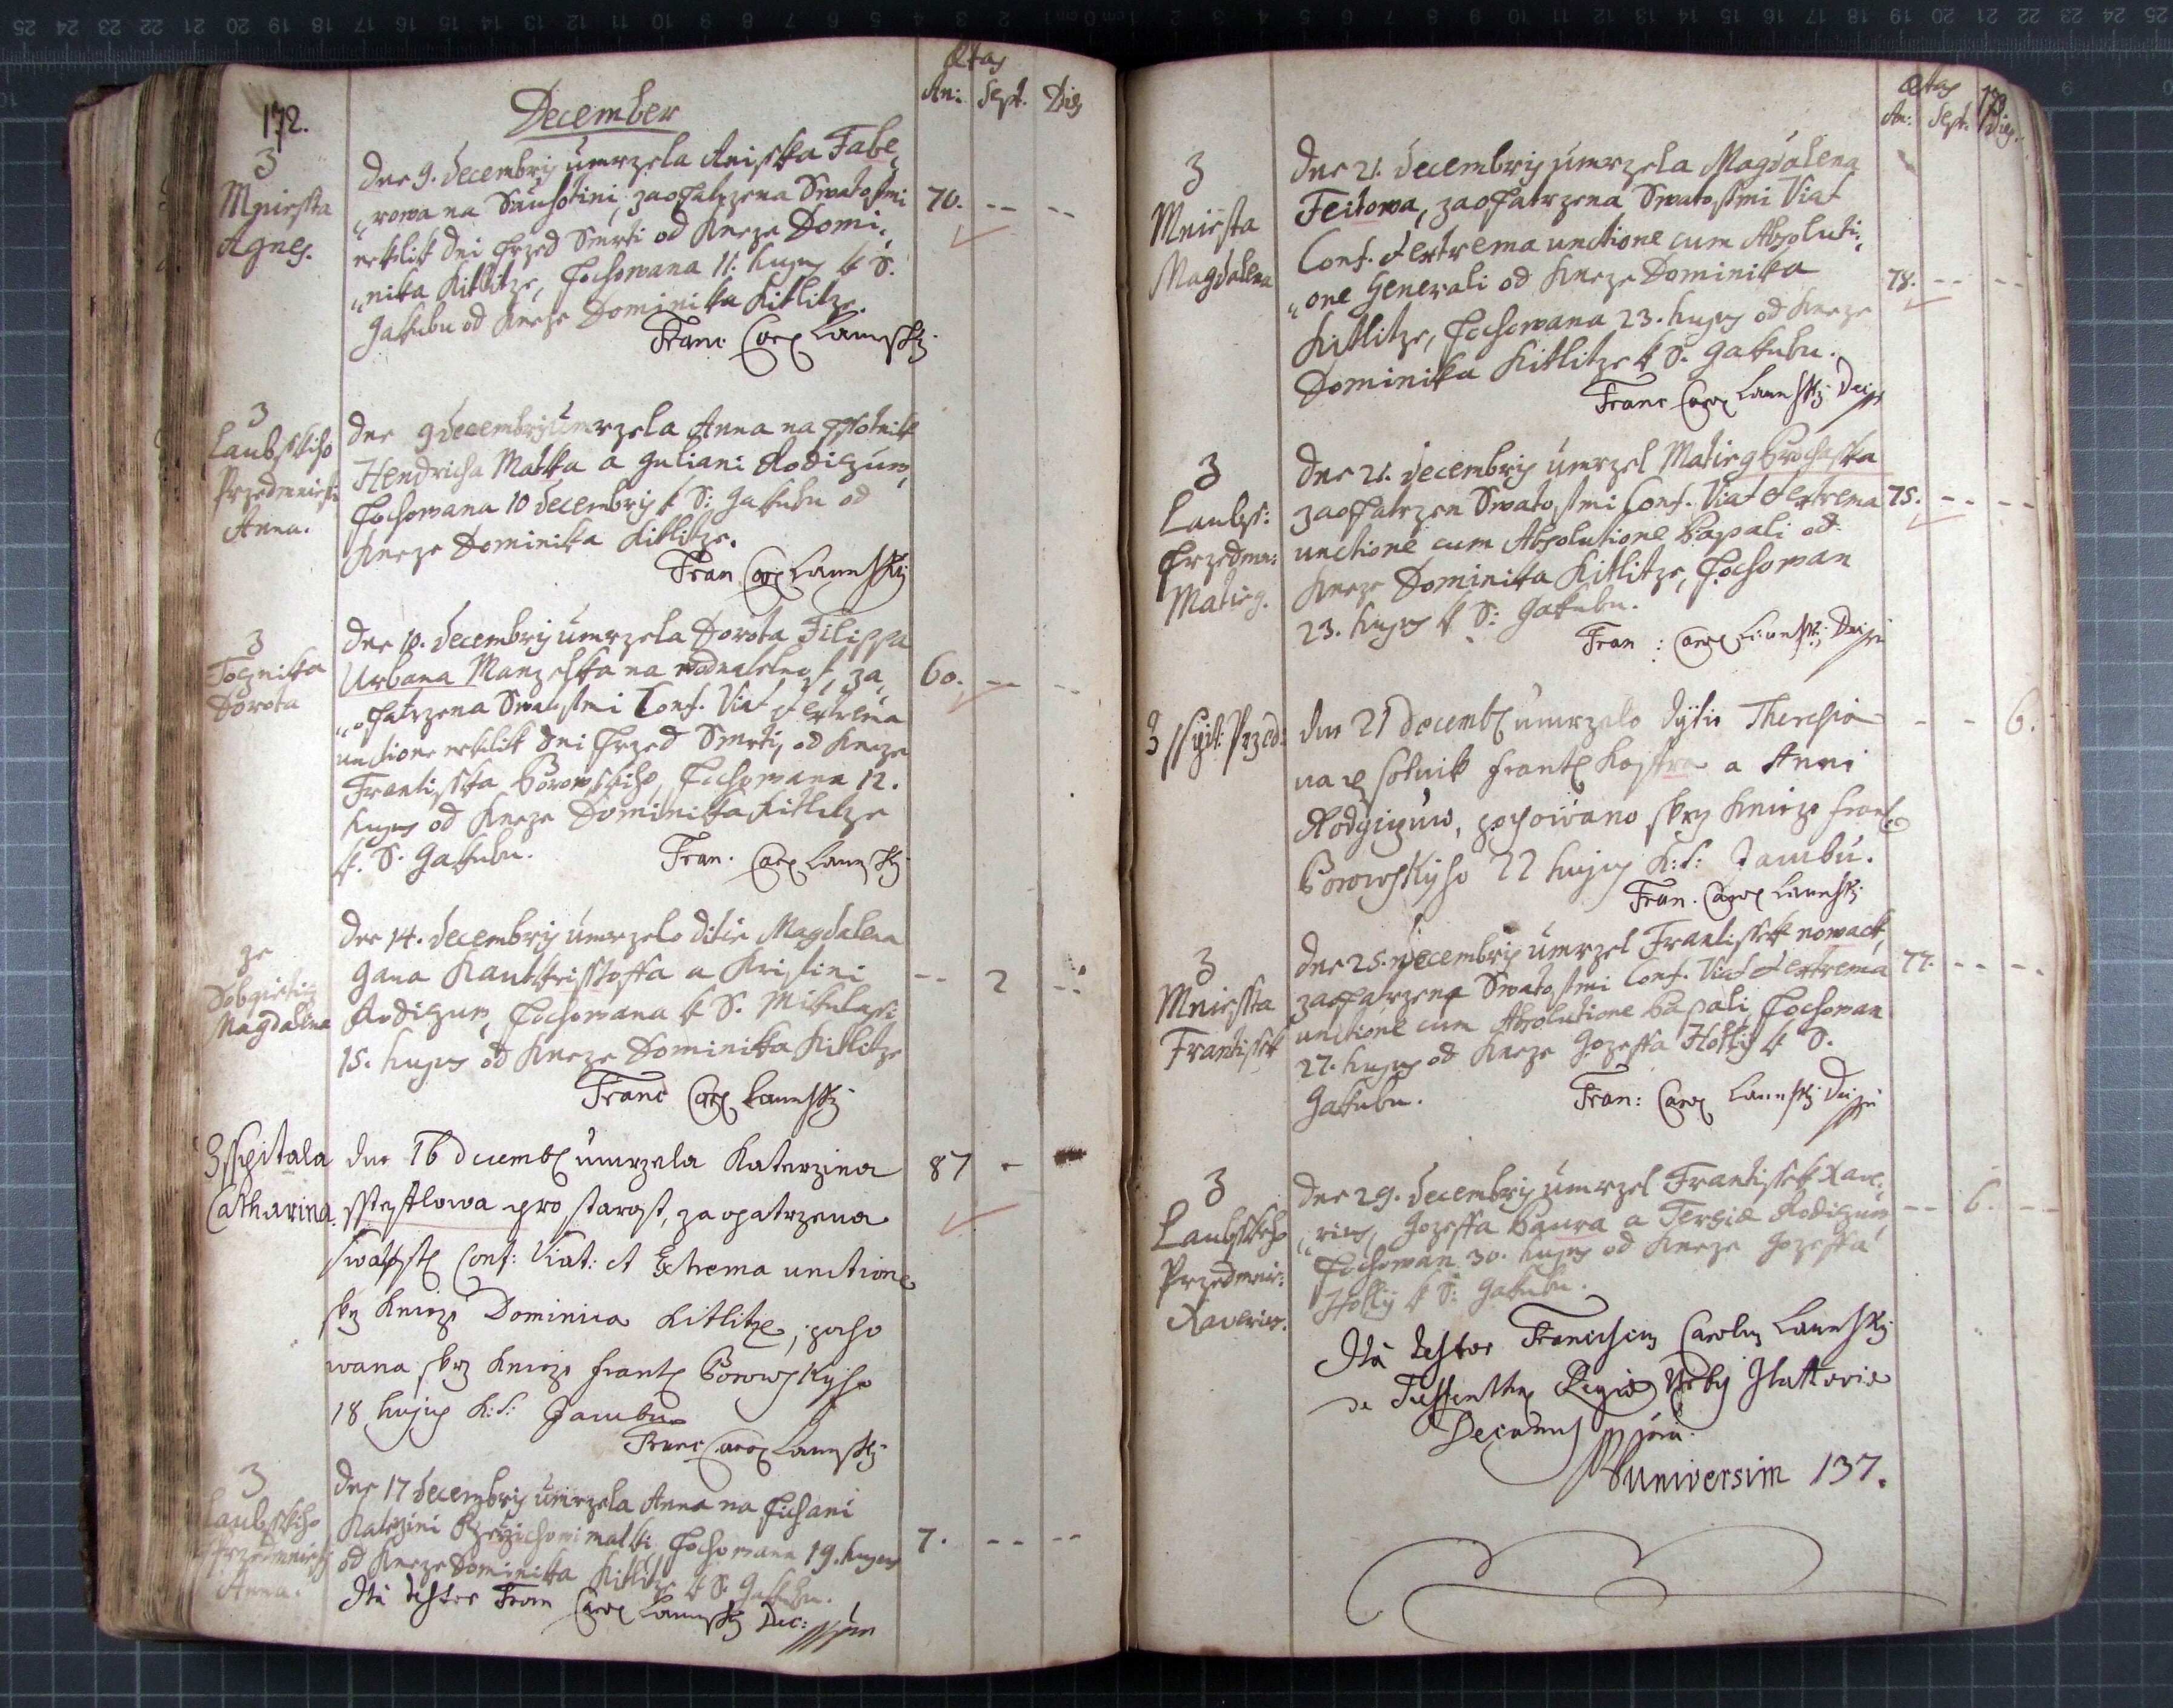 172.
December
Ætas
An: Sept. Dies
3
Mniessta
Agnes.
Dne 9. Decembris úmrzela Anisska Fabe„
„rowa na Sauchotini, zaopatrzena Swatostmi
nekolik dni przed Smrti od Kneze Domi„
„nika Kitlitze, pochowana 11. hujus k S.
Gakubu od Kneze Dominika Kitlitze.
70. -- --
Franc Car Lannsky
3
Laubsskiho
Przedmiesti
Anna.
Dne 9 Decembris úmrzela Anna na psotnik
Hendricha Matka a Juliani Rodiczum,
pochowana 10 Decembris k S: Gakubu od
Kneze Dominika Kitlitze.
Fran Car Lannsky
3
Tognika
Dorota
Dne 10. Decembris úmrzela Dorota Filippa
Urbana Manzelka na wodnatelnost, za„
„opatrzena Swatostmi Conf. Viat et extrema
unctione nekolik dni przed Smrti, od Kneze
Frantisska Borowskiho, pochowana 12.
hujus od Kneze Dominika Kitlitze
k. S. Gakubu.
60. -- --
Fran. Car Lannsky
ze
Magdalena
Dne 14. Decembris úmrzelo ditie Magdalena
Gana a Kristini
Rodiczum, pochowana k S. Mikulassi
15. hujus od Kneze Dominika Kitlitze
-- 2 --
Franc Car Lannsky
3 Sspitala
Catharina.
dne 16 Decemb úmrzela Katerzina
pro starost, zaopatrzena
Swatost Conf: Viat: et Extrema unctione
skrz Knieze Dominica Kitlitze, pocho
wana skrz Knieze Frant Borowskyho
18 hujus K: S: Jacubu
87 -
Franc Car Lannsky
3
Laubsskiho
Przedmiesti
Anna.
Dne 17 Decembris úmrzela Anna na pichani
Katrzini matki, pochowana 19. hujus
od Kneze Dominika Kitlitze k S. Gakubu.
7. -- --
Ita testor Fran Carol Lannsky Dec:
Ætas
An: Sept. Dies.
3
Mniesta
Magdalena
Dne 21. Decembris úmrzela Magdalena
Feitowa, zaopatrzena Swatostmi Viat
Conf. et extrema unctione cum Absoluti„
„one Generali od Kneze Dominika
Kitlitze, pochowana 23. hujus od Kneze
Dominika Kitlitze k S. Gakubu.
78. -- --
Franc Carol Lannsky
3
Laubss:
przedmie:
Matieg.
Dne 21. Decembris úmrzel Matieg Prochaska
zaopatrzen Swatostmi Conf. Viat et extrema
unctione cum Absolutione Papali od
Kneze Dominika Kitlitze, pochowan
23. hujus k S: Gakubu.
75. -- --
Fran: Carol Lannsky
3 Przed:
dne 21 Decemb úmrzelo dytie Theresia
na psotnik Frant Kostra a Anni
Rodyczuw, pochowano skrz Knieze Frant
Borowskyho 22 hujus K: S: Jacubu.
- - 6.
Fran. Carol Lannsky
3
Mniessta
Frantissek
Dne 25. Decembris úmrzel Frantissek nowack,
zaopatrzen Swatostmi Conf. Viat et extrema
unctione cum Absolutione Papali, pochowan
27. hujus od Kneze Gozeffa Holky k S.
Gakubu.
77. -- --
Fran: Carol Lannsky
3
Laubsskeho
Przedmie:
Xaverius.
Dne 29. Decembris úmrzel Frantissek Xave„
„rius, Gozeffa Baura a Terezie Rodiczum,
pochowan 30. hujus od Kneze Gozeffa
Holky k S: Gakubu.
-- 6. --
Ita testor Franciscus Carolus Lannsky
de Regiae Urbis Glattoviae
Decanus
universim 137.